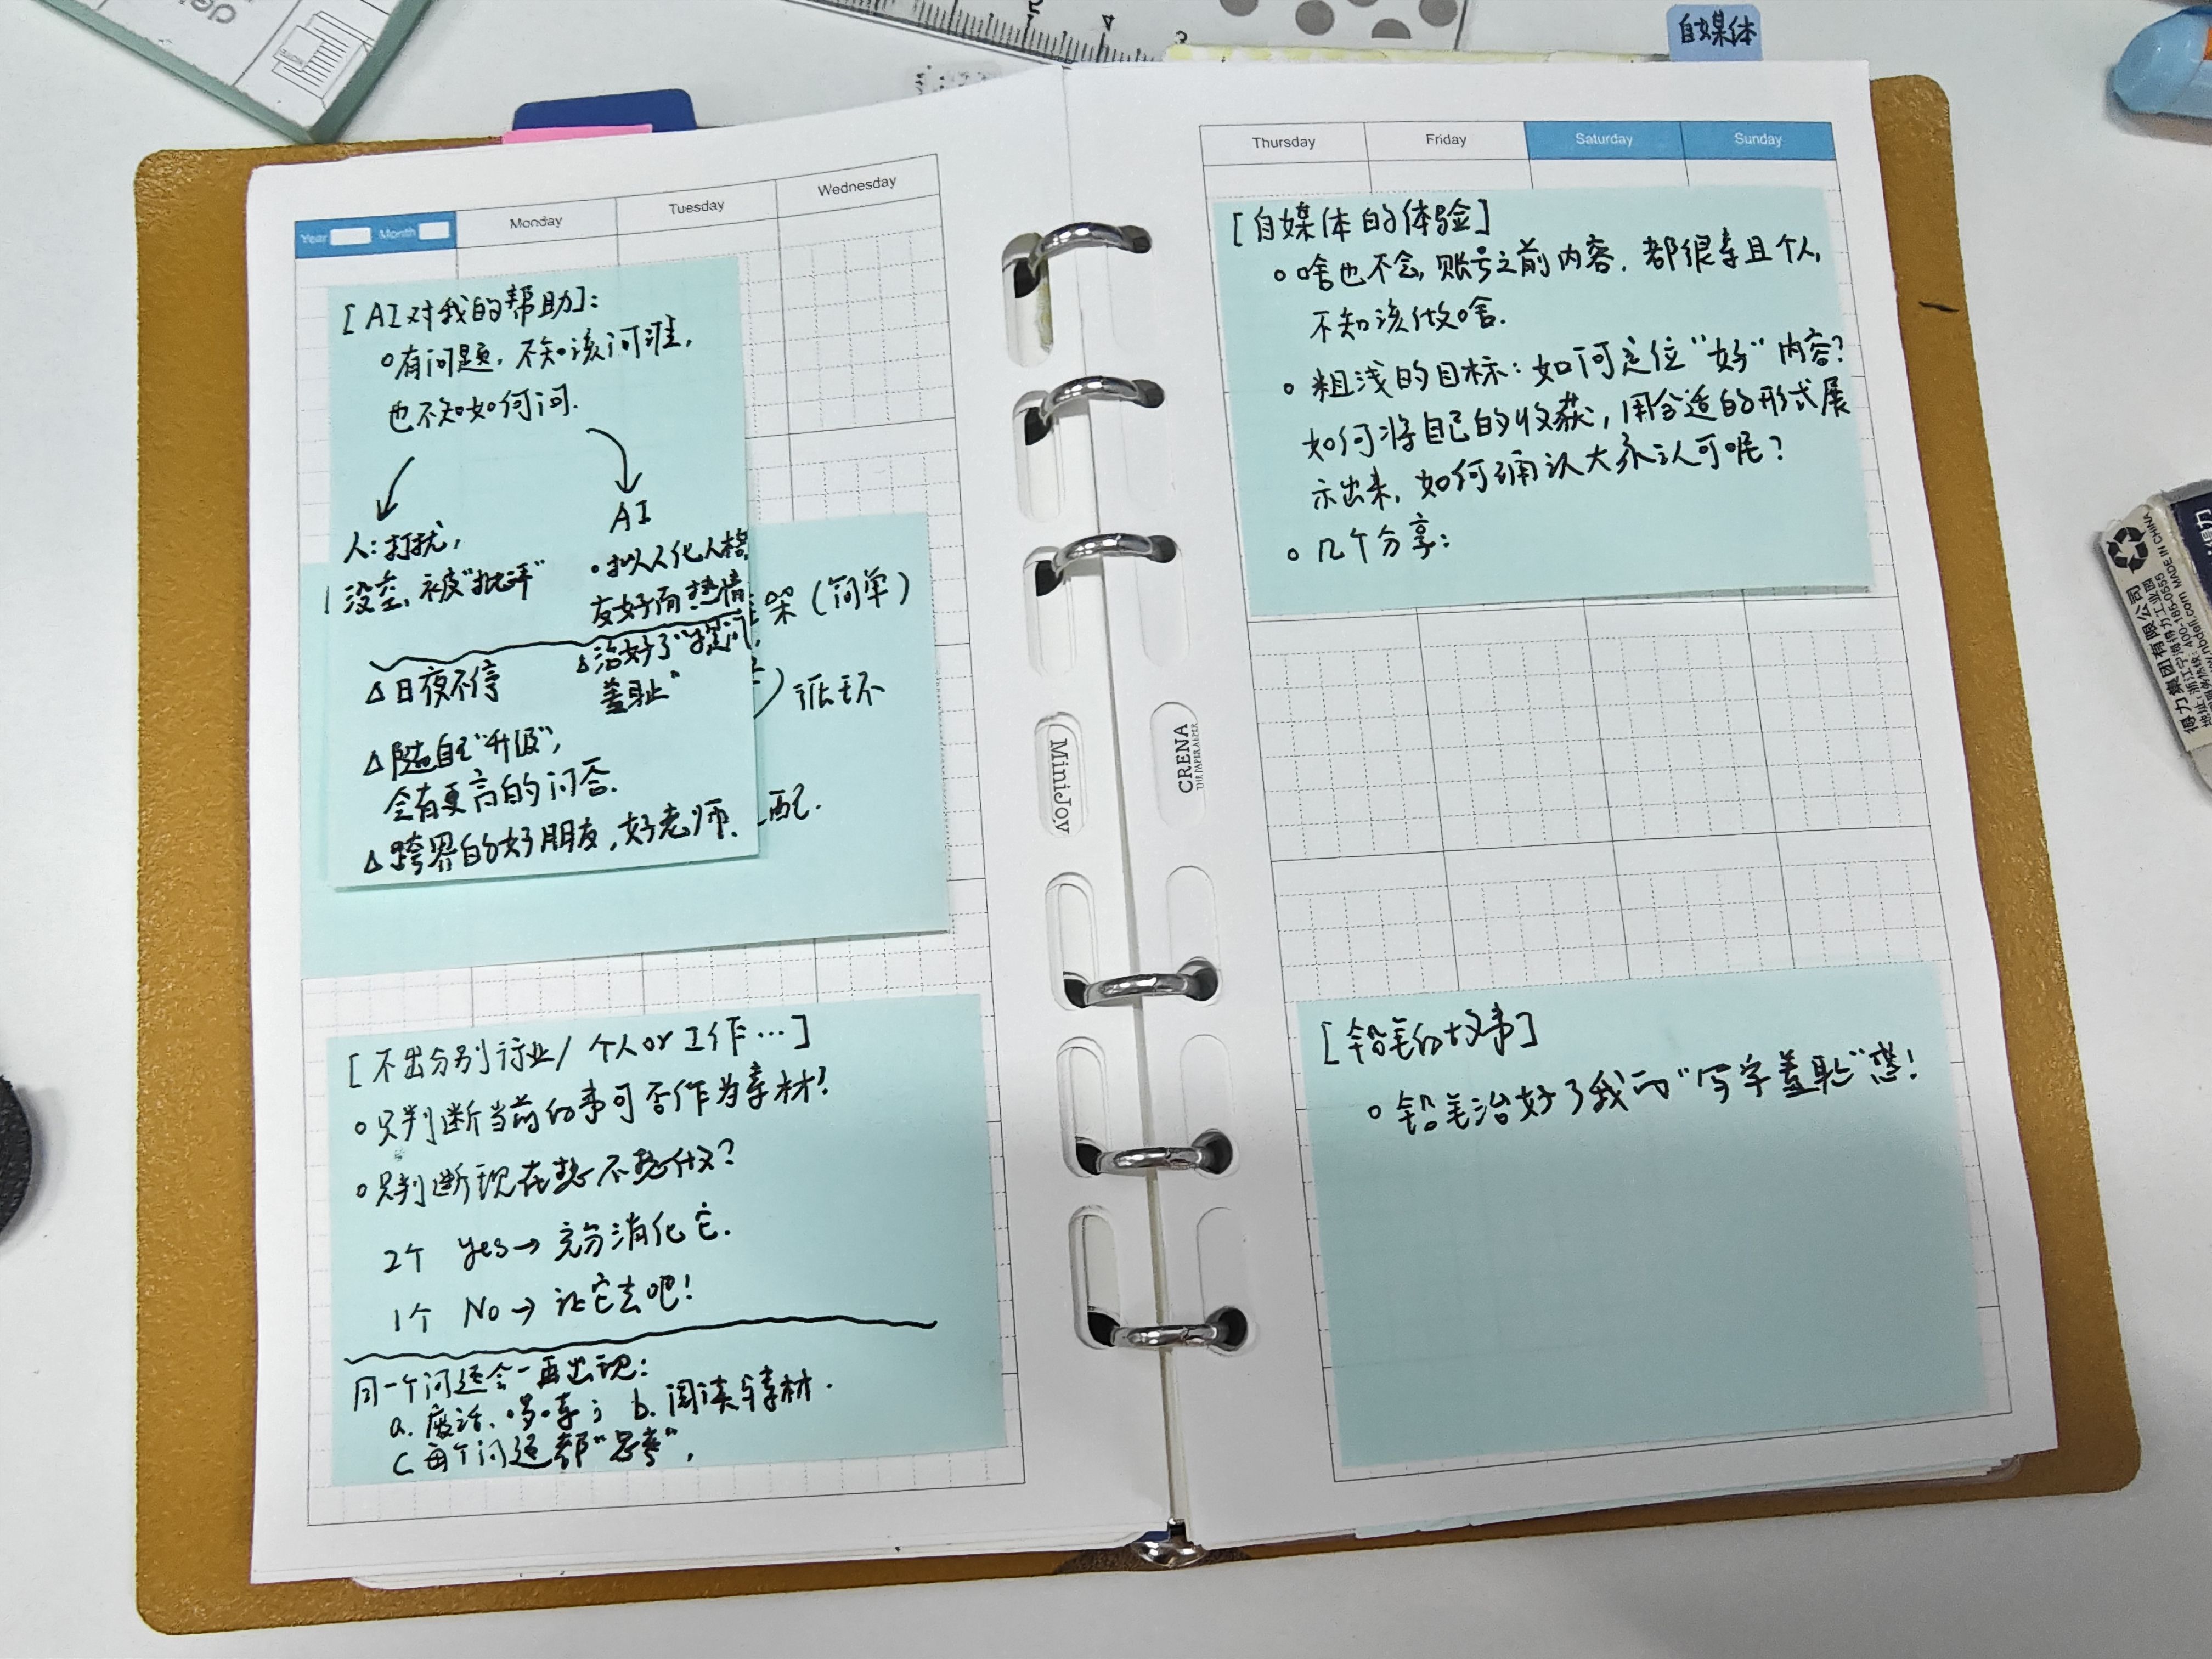 自媒体
Year Month Monday Tuesday Wednesday
[AI对我的帮助]:
有问题,不知该问谁,
也不知如何问.
人:打扰,
没空,被"批评"
AI
·拟人化人格
友好而热情
△治好了"提问
羞耻"
△日夜不停
△随自己"升级",
会有更高的问答.
△跨界的好朋友,好老师.
架(简单)
循环
配.
[不出分别行业/个人or工作…]
只判断当前的事可否作为素材?
只判断现在想不想做?
2个 yes→充分消化它.
1个 No→让它去吧!
同一个问题会一再出现:
a.废话、啰嗦; b.阅读与素材.
c.每个问题都"思考",
Thursday Friday Saturday Sunday
[自媒体的体验]
啥也不会,账号之前内容,都很素且个人,
不知该做啥.
粗浅的目标:如何定位"好"内容?
如何将自己的收获,用合适的形式展
示出来,如何确认大家认可呢?
几个分享:
[铅笔的故事]
铅笔治好了我的"写字羞耻"感!
MiniJoy
CRENA
THE PAPER KEEPER
得力集团有限公司
MADE IN CHINA